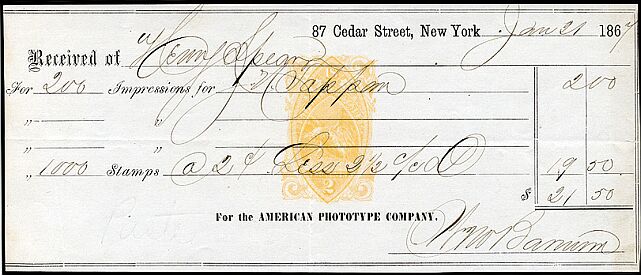 87 Cedar Street, New York Jan 21 1867
Received of Henry Spear
For 200 Impressions for Tappan 2 00
„ „
„ 1000 Stamps @ 2 ¢ Less 2½ 19 50
$ 21 50
2
For the AMERICAN PHOTOTYPE COMPANY,
Wm Barnum